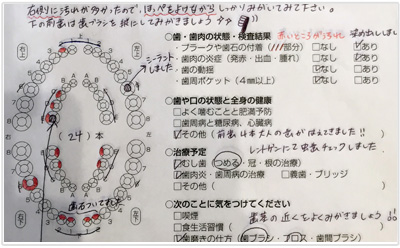 右側に汚れが多かったので、ほっぺをよけながらしっかりみがいてみて下さい。
下の前歯は歯ブラシを縦にしてみがきましょう
右上
左上
シーラントしました
(24)本
歯石ついてました
右下
左下
○歯・歯肉の状態・検査結果
赤いところがよごれ
染め出ししました
・プラークや歯石の付着(///部分) □なし ☑あり
・歯肉の炎症(発赤・出血・腫れ) □なし ☑あり
・歯の動揺 ☑なし □あり
・歯周ポケット(4㎜以上) ☑なし □あり
○歯や口の状態と全身の健康
□よく噛むことと肥満予防
□歯周病と糖尿病、心臓病
☑その他(前歯4本大人の歯がはえてきました!!
レントゲンにて虫歯チェックしました
○治療予定
☑むし歯(つめる・冠・根の治療)
☑歯肉炎・歯周病の治療 □義歯・ブリッジ
□その他(
○次のことに気をつけてください
□喫煙
□食生活習慣(
歯茎の近くをよくみがきましょう
☑歯磨きの仕方(歯ブラシ・フロス・歯間ブラシ)